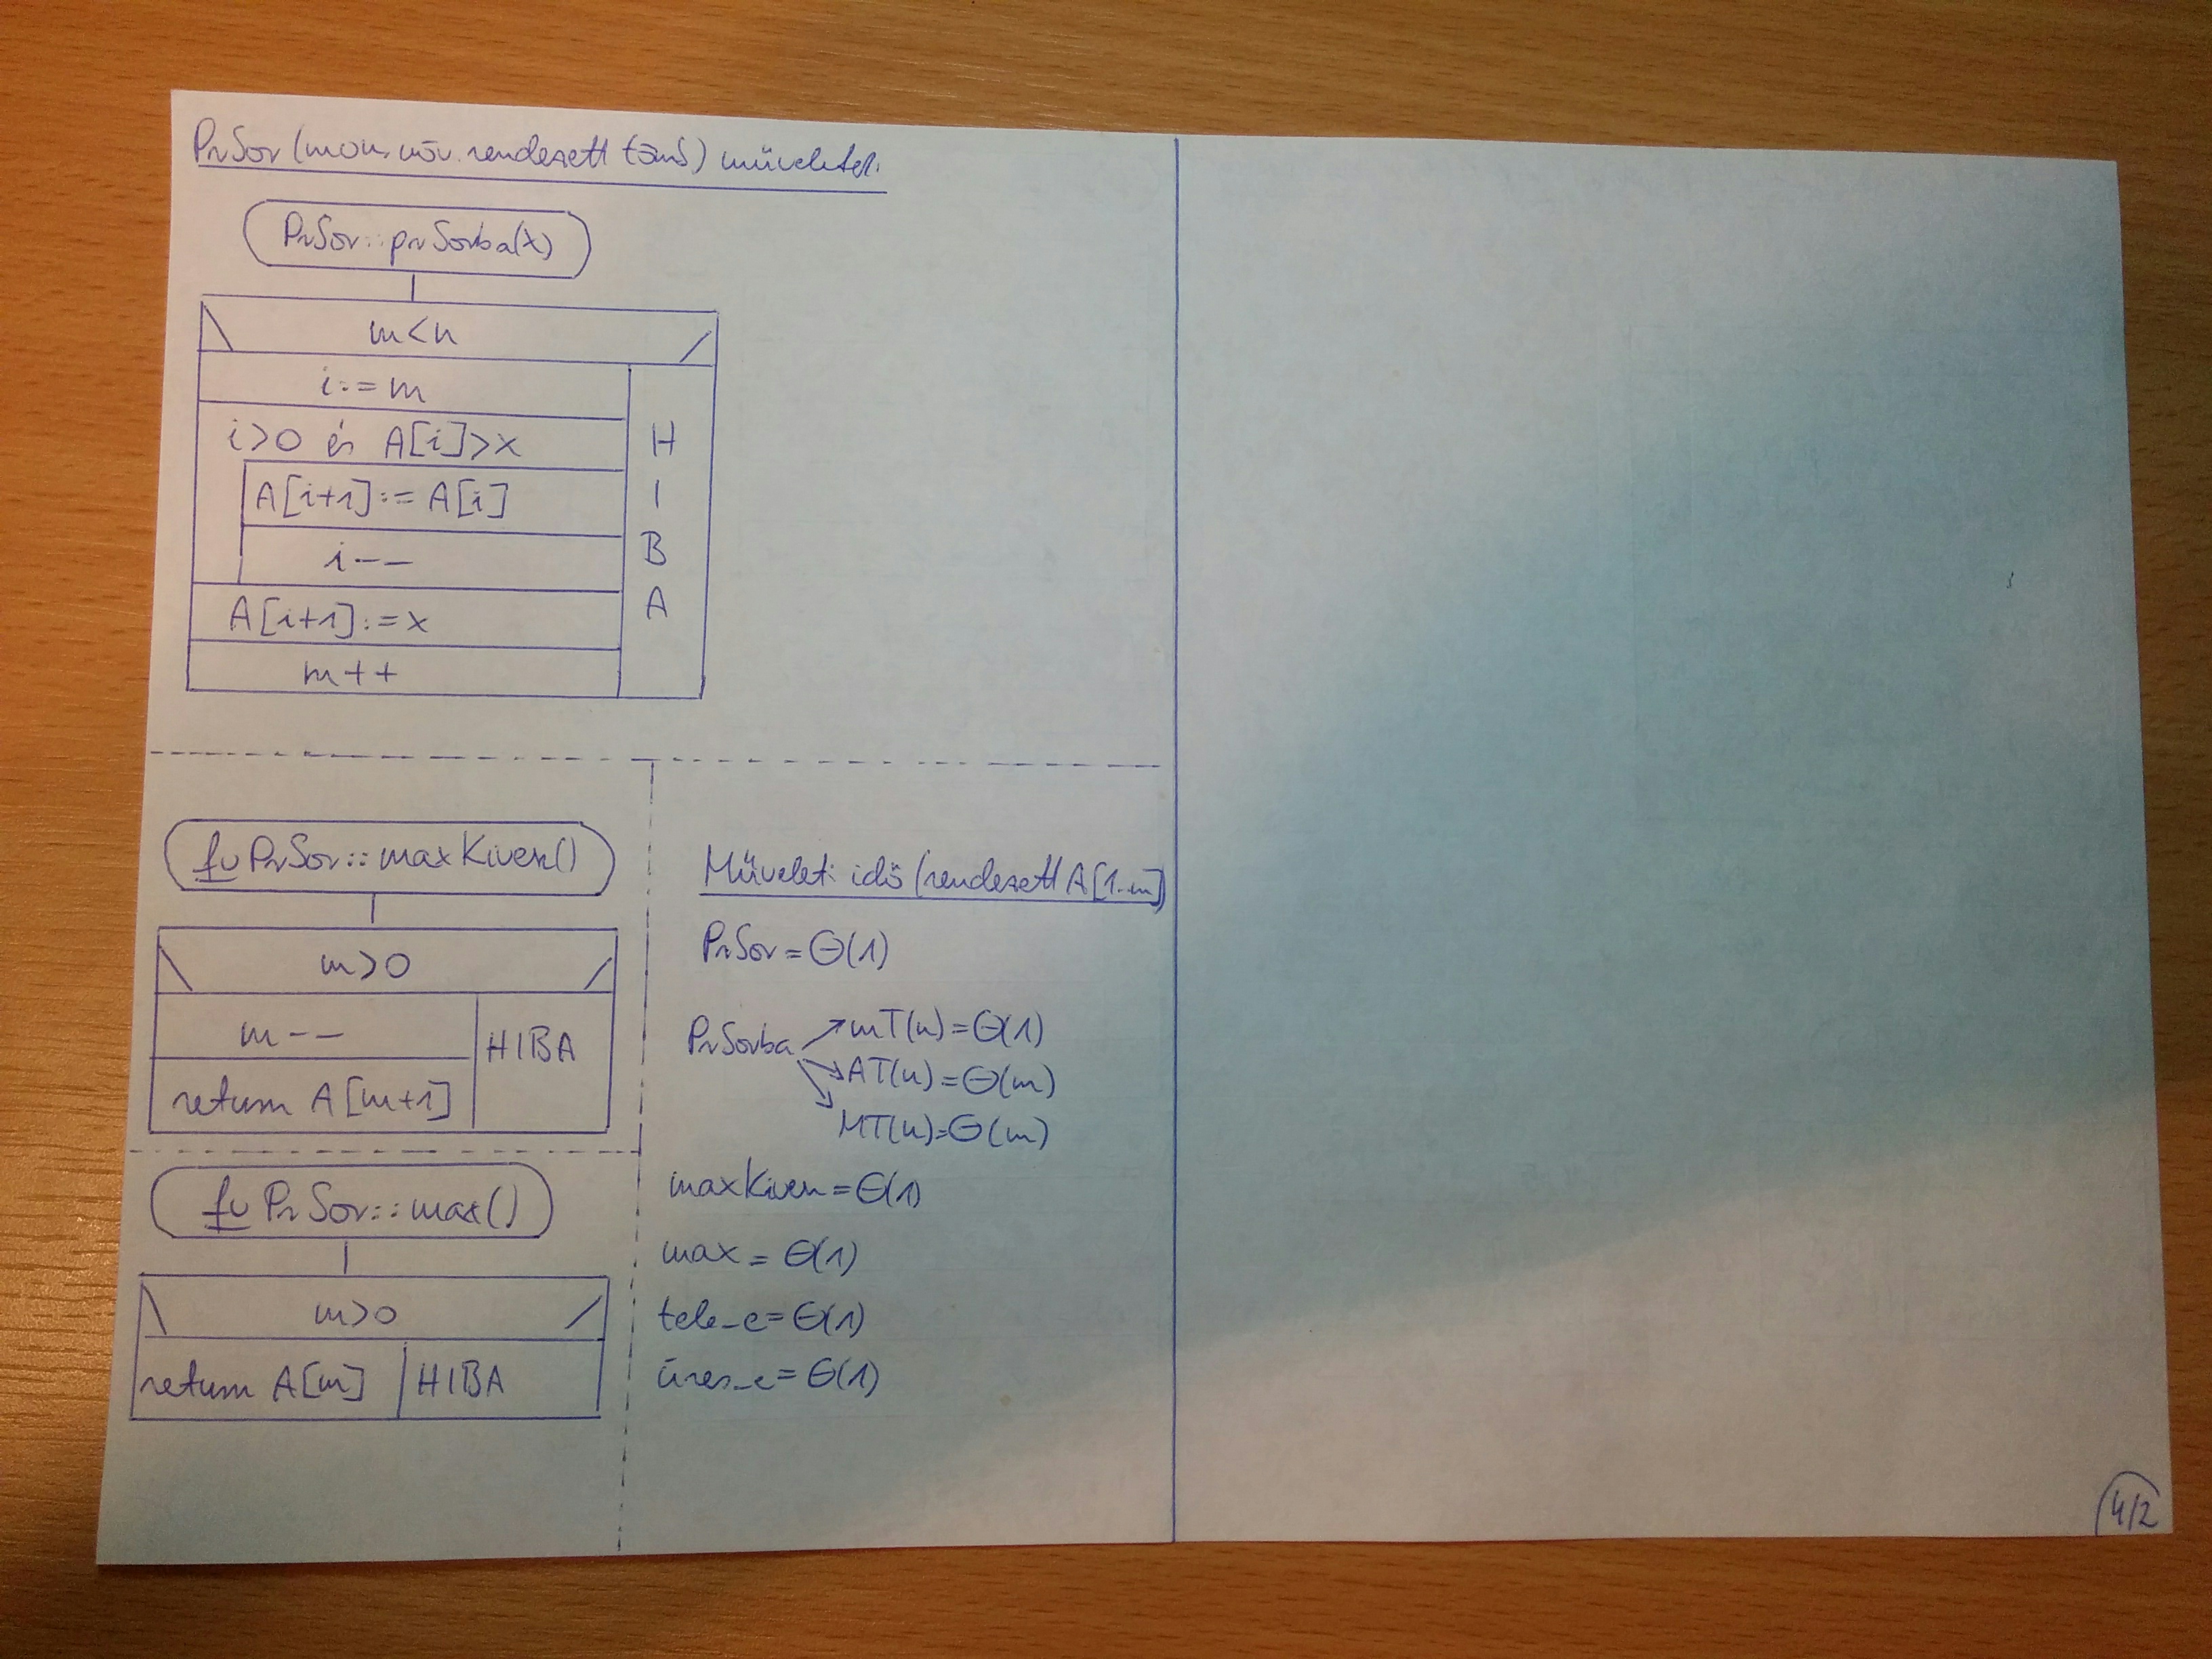 PrSor (mon. növ. rendezett tömb) műveletei
PrSor::prSorba(x)
m<n
i:=m
i>0 és A[i]>x
A[i+1]:=A[i]
i--
A[i+1]:=x
m++
HIBA
fv PrSor::maxKivesz()
m>0
m--
return A[m+1]
HIBA
fv PrSor::max()
m>0
return A[m]
HIBA
Műveleti idő (rendezett A[1..m])
PrSor = Θ(1)
PrSorba
mT(n)=Θ(1)
AT(n)=Θ(m)
MT(n)=Θ(m)
maxKivesz = Θ(1)
max = Θ(1)
tele_e = Θ(1)
üres_e = Θ(1)
4/2